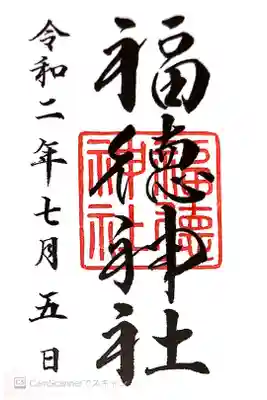 福徳神社
福徳
神社
令和二年七月五日
CS CamScannerでスキャ